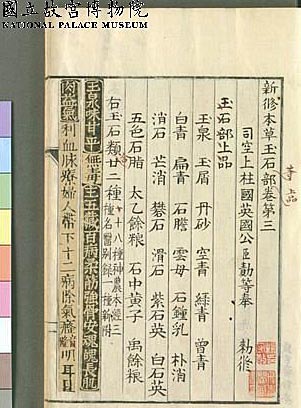 國立故宮博物院
NATIONAL PALACE MUSEUM
新修本草玉石部卷第三
司空上柱國英國公臣勣等奉 勑修
玉石部上品
玉泉 玉屑 丹砂 空青 綠青 曾青
白青 扁青 石膽 雲母 石鍾乳 朴消
消石 芒消 礬石 滑石 紫石英 白石英
五色石脂 太乙餘粮 石中黃子 禹餘粮
右玉石類廿二種
十八種神農本經三
種名醫別錄一種新附
玉泉味甘平無毒主五藏百病柔筋強骨安魂魄長肌
肉益氣利血脉療婦人帶下十二病除氣癃明耳目